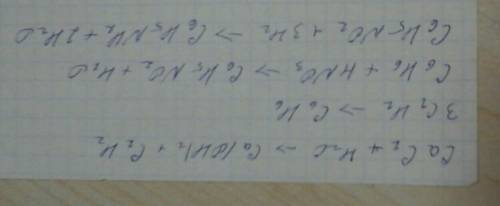 CaC₂ + H₂O → Ca(OH)₂ + C₂H₂
3C₂H₂ → C₆H₆
C₆H₆ + HNO₃ → C₆H₅NO₂ + H₂O
C₆H₅NO₂ + 3H₂ → C₆H₅NH₂ + 2H₂O